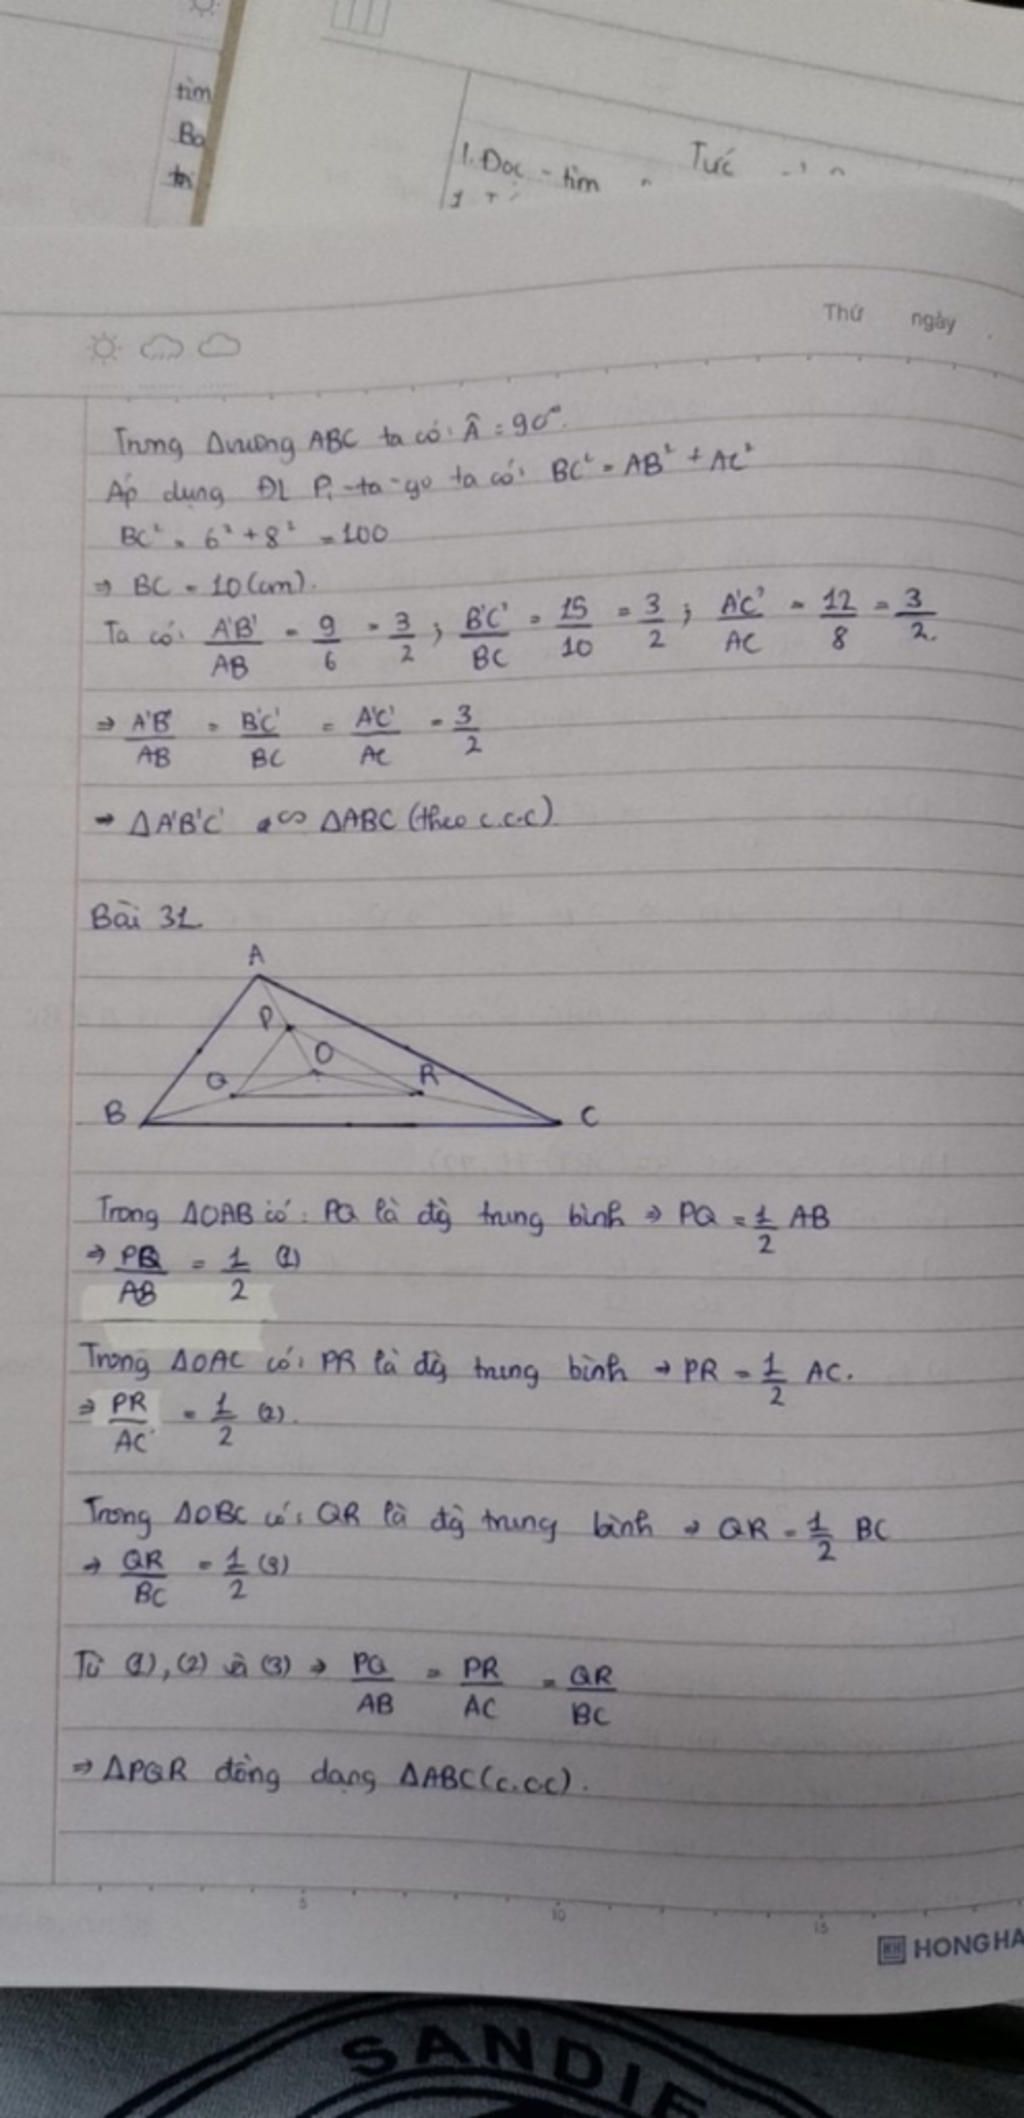 tìm
1. Đọc - tìm
Tức
Thứ ngày
Trong Δvuông ABC ta có: Â = 90°.
Áp dụng ĐL Pi-ta-go ta có: BC² = AB² + AC²
BC² = 6² + 8² = 100
⇒ BC = 10 (cm).
Ta có: A'B'/AB = 9/6 = 3/2 ; B'C'/BC = 15/10 = 3/2 ; A'C'/AC = 12/8 = 3/2.
⇒ A'B'/AB = B'C'/BC = A'C'/AC = 3/2
→ ΔA'B'C' ∽ ΔABC (theo c.c.c)
Bài 31.
A
P
O
Q
R
B
C
Trong ΔOAB có: PQ là đg trung bình ⇒ PQ = 1/2 AB
⇒ PQ/AB = 1/2 (1)
Trong ΔOAC có: PR là đg trung bình → PR = 1/2 AC.
⇒ PR/AC = 1/2 (2).
Trong ΔOBC có: QR là đg trung bình → QR = 1/2 BC
→ QR/BC = 1/2 (3)
Từ (1), (2) và (3) ⇒ PQ/AB = PR/AC = QR/BC
⇒ ΔPQR đồng dạng ΔABC (c.c.c).
5 10 15
HONG HA
SANDIE